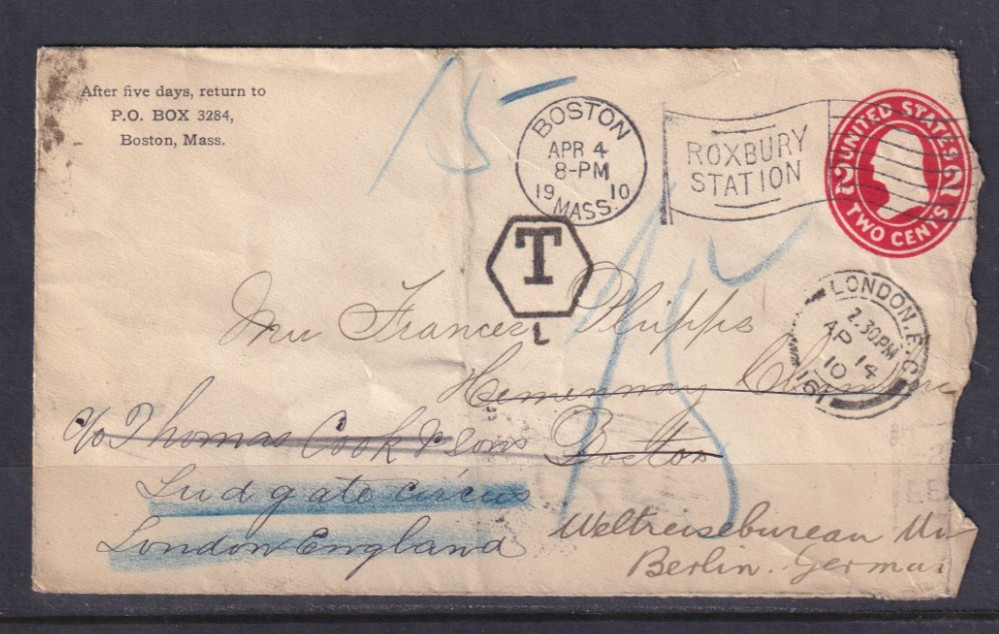 After five days, return to
P.O. BOX 3284,
Boston, Mass.
15
BOSTON
APR 4
8-PM
19 10
MASS.
ROXBURY
STATION
UNITED STATES
2 2
TWO CENTS
T
L
LONDON. E.C
2.30PM
AP 14
10
Frances Phipps
Hemenway
Boston
c/o Thomas Cook & Sons
Ludgate Circus
London England
Weltreisebureau
Berlin. German